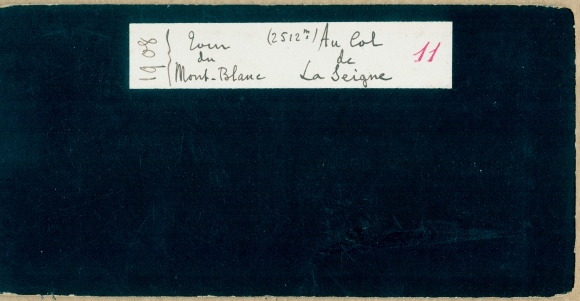 1908 { Tour (2512m) Au Col
du de 11
Mont-Blanc La Seigne